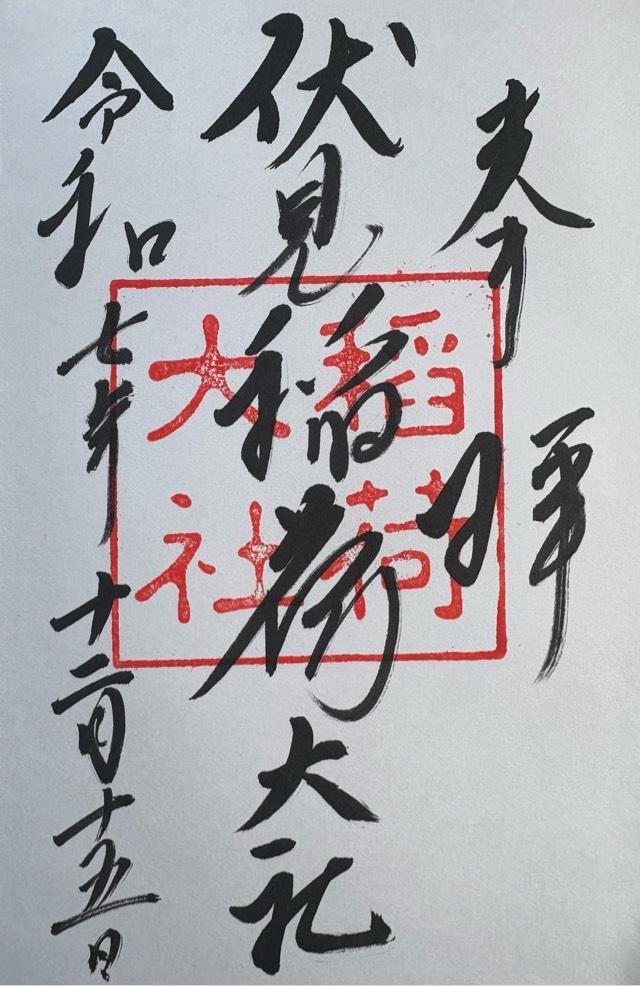 奉拝
伏見稲荷大社
令和七年十二月十五日
稲荷
大社